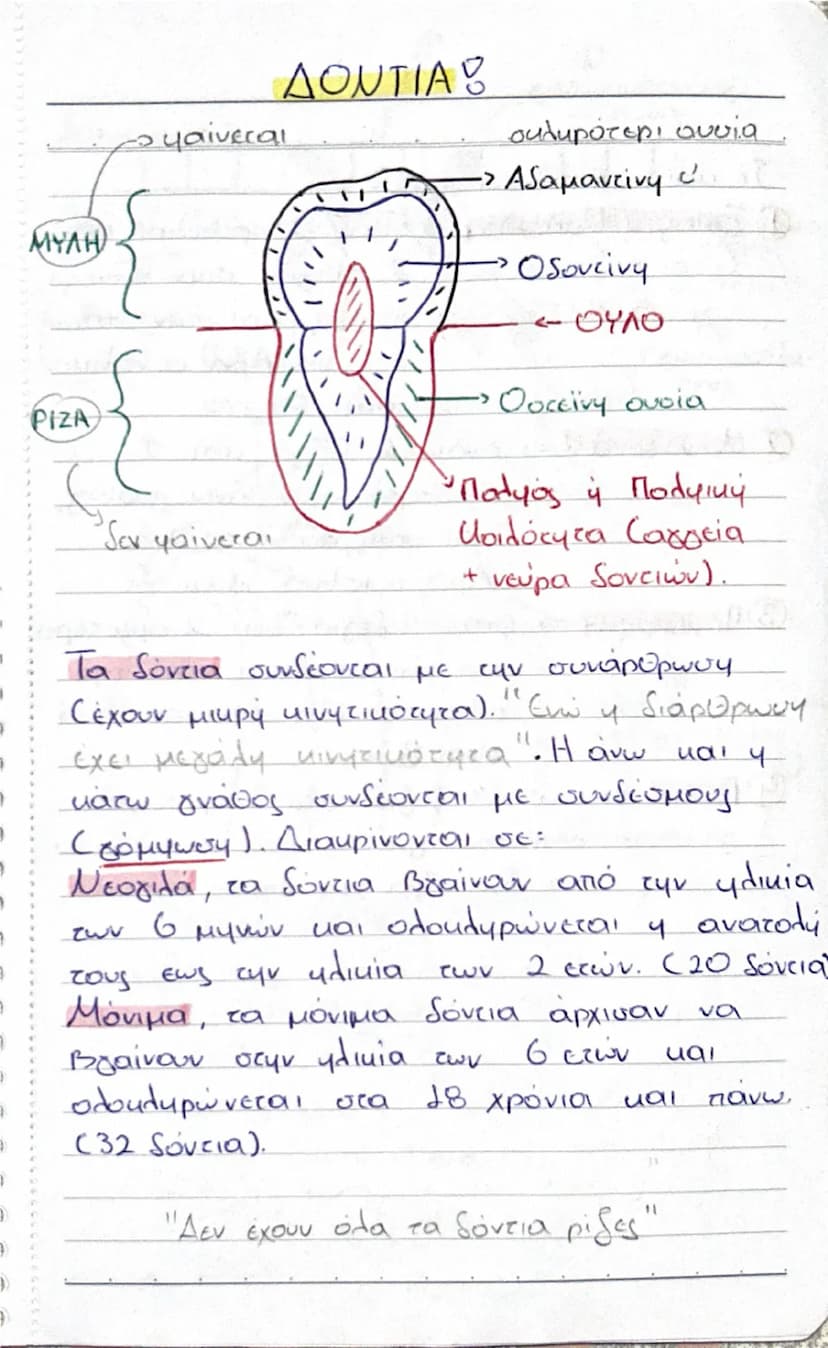 ΔΟΝΤΙΑ!
φαίνεται
σκληρότερι ουσία
Αδαμαντίνη
ΜΥΛΗ
Οδοντίνη
ΟΥΛΟ
ΡΙΖΑ
Οστεϊνη ουσία
δεν φαίνεται
Πολφός ή Πολφική
Κοιλότητα (αγγεία
+ νεύρα δοντιών).
Τα δόντια συνδέονται με την συνάρθρωση
(έχουν μικρή κινητικότητα). "Ενώ η διάρθρωση
έχει μεγάλη κινητικότητα". Η άνω και η
κάτω γνάθος συνδέονται με συνδέσμους
(γόμφωση). Διακρίνονται σε:
Νεογιλά, τα δόντια βγαίναν από την ηλικία
των 6 μηνών και ολοκληρώνεται η ανατολή
τους εως την ηλικία των 2 ετών. (20 δόντια)
Μόνιμα, τα μόνιμα δόντια άρχισαν να
βγαίναν στην ηλικία των 6 ετών και
ολοκληρώνεται στα 18 χρόνια και πάνω.
(32 δόντια).
"Δεν έχουν όλα τα δόντια ρίζες"